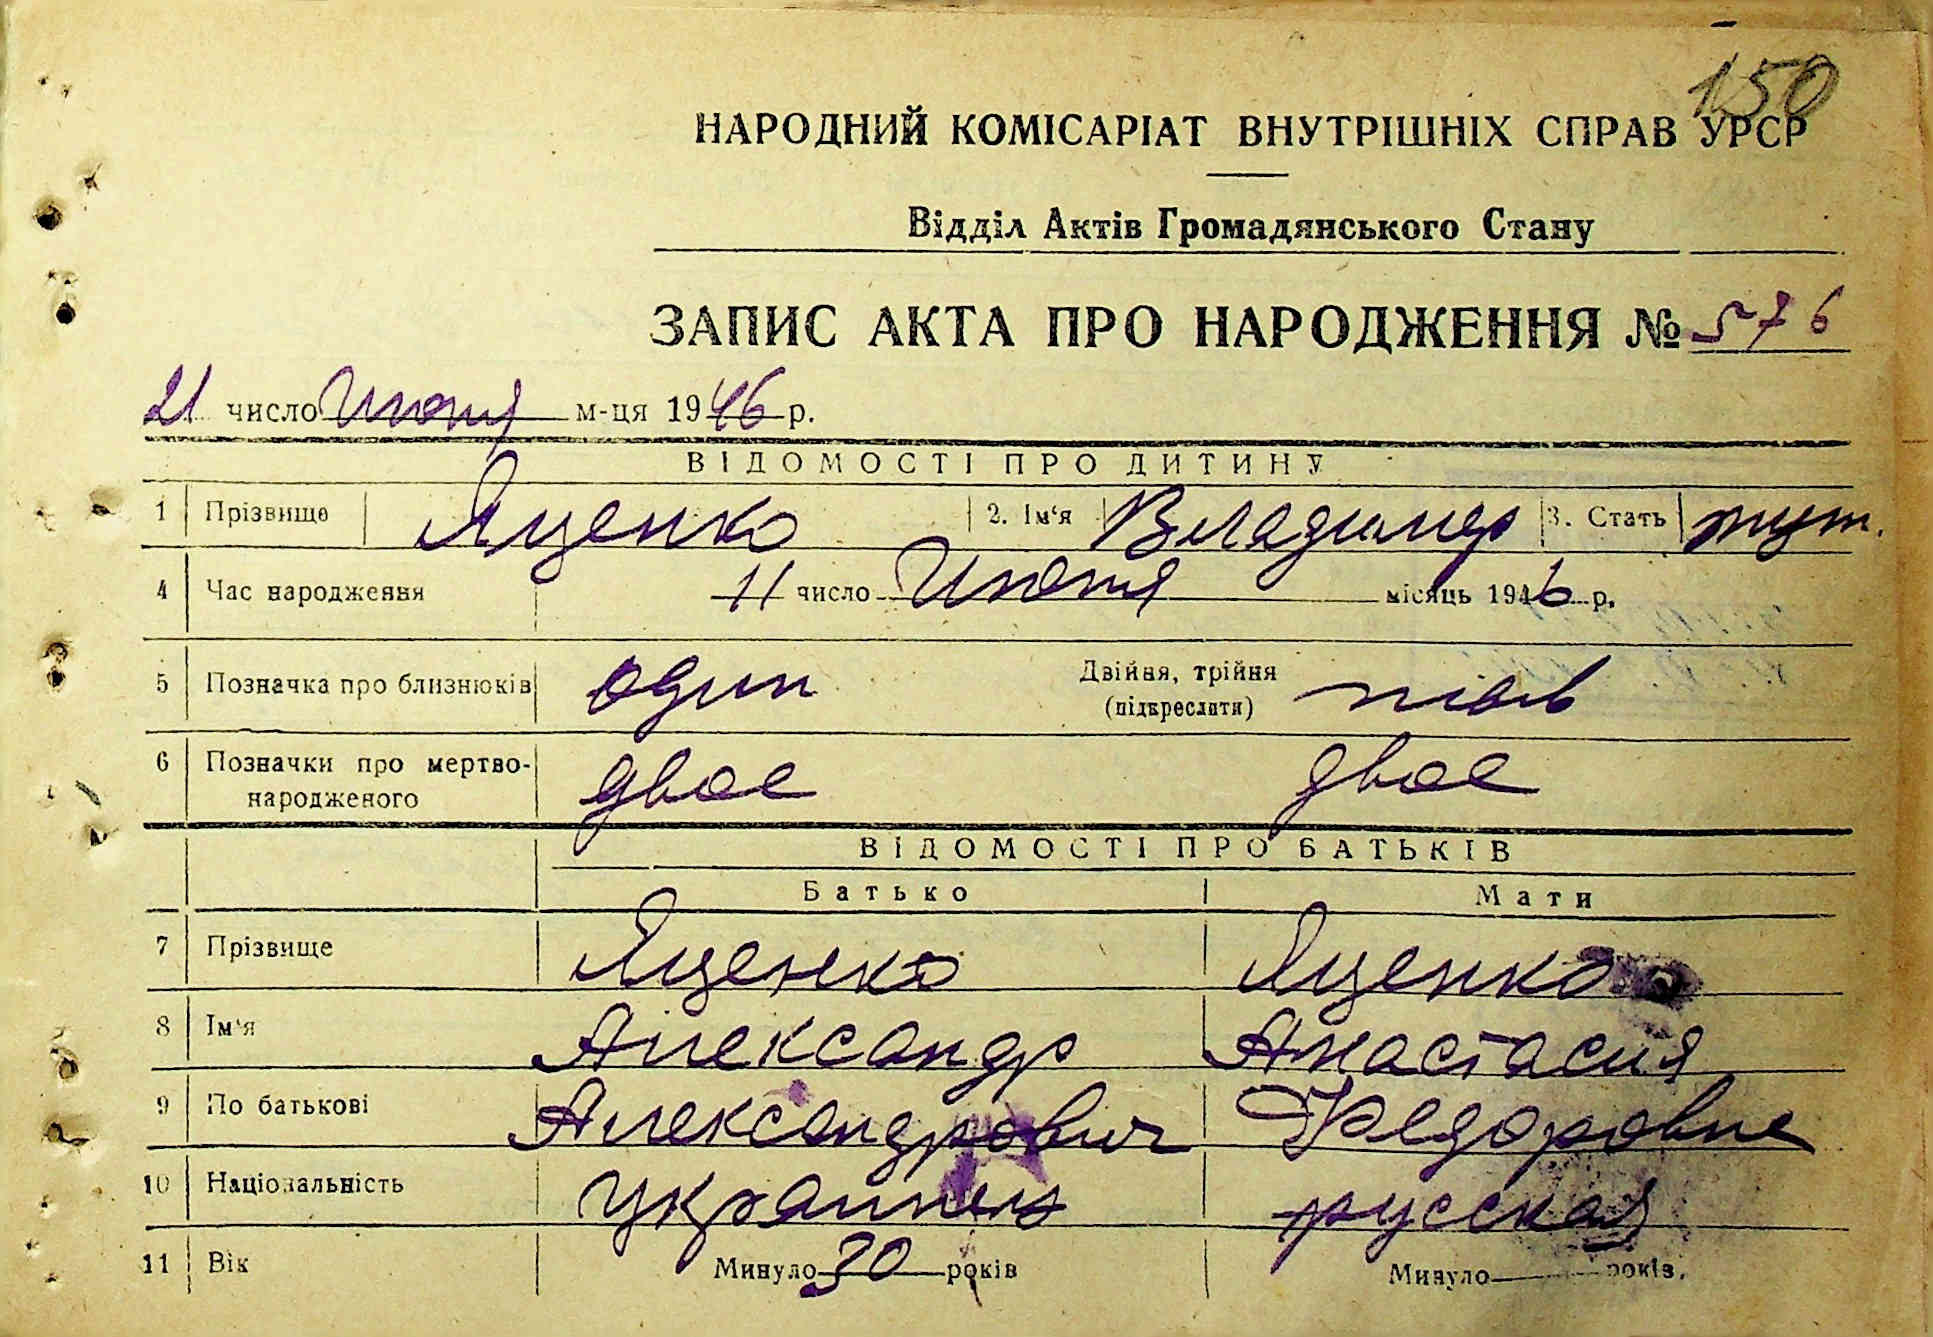 150
НАРОДНИЙ КОМІСАРІАТ ВНУТРІШНІХ СПРАВ УРСР
Відділ Актів Громадянського Стану
ЗАПИС АКТА ПРО НАРОДЖЕННЯ № 576
21 число Июня м-ця 1946 р.
ВІДОМОСТІ ПРО ДИТИНУ
1 Прізвище Яценко 2. Ім'я Владимер 3. Стать муж.
4 Час народження 11 число Июня місяць 1946 р.
5 Позначка про близнюків один Двійня, трійня
(підкреслити)
6 Позначки про мертво- двое двое
народженого
ВІДОМОСТІ ПРО БАТЬКІВ
Батько Мати
7 Прізвище Яценко Яценко
8 Ім'я Александр Анастасия
9 По батькові Александрович Федоровна
10 Національність украинец русская
11 Вік Минуло 30 років Минуло років.